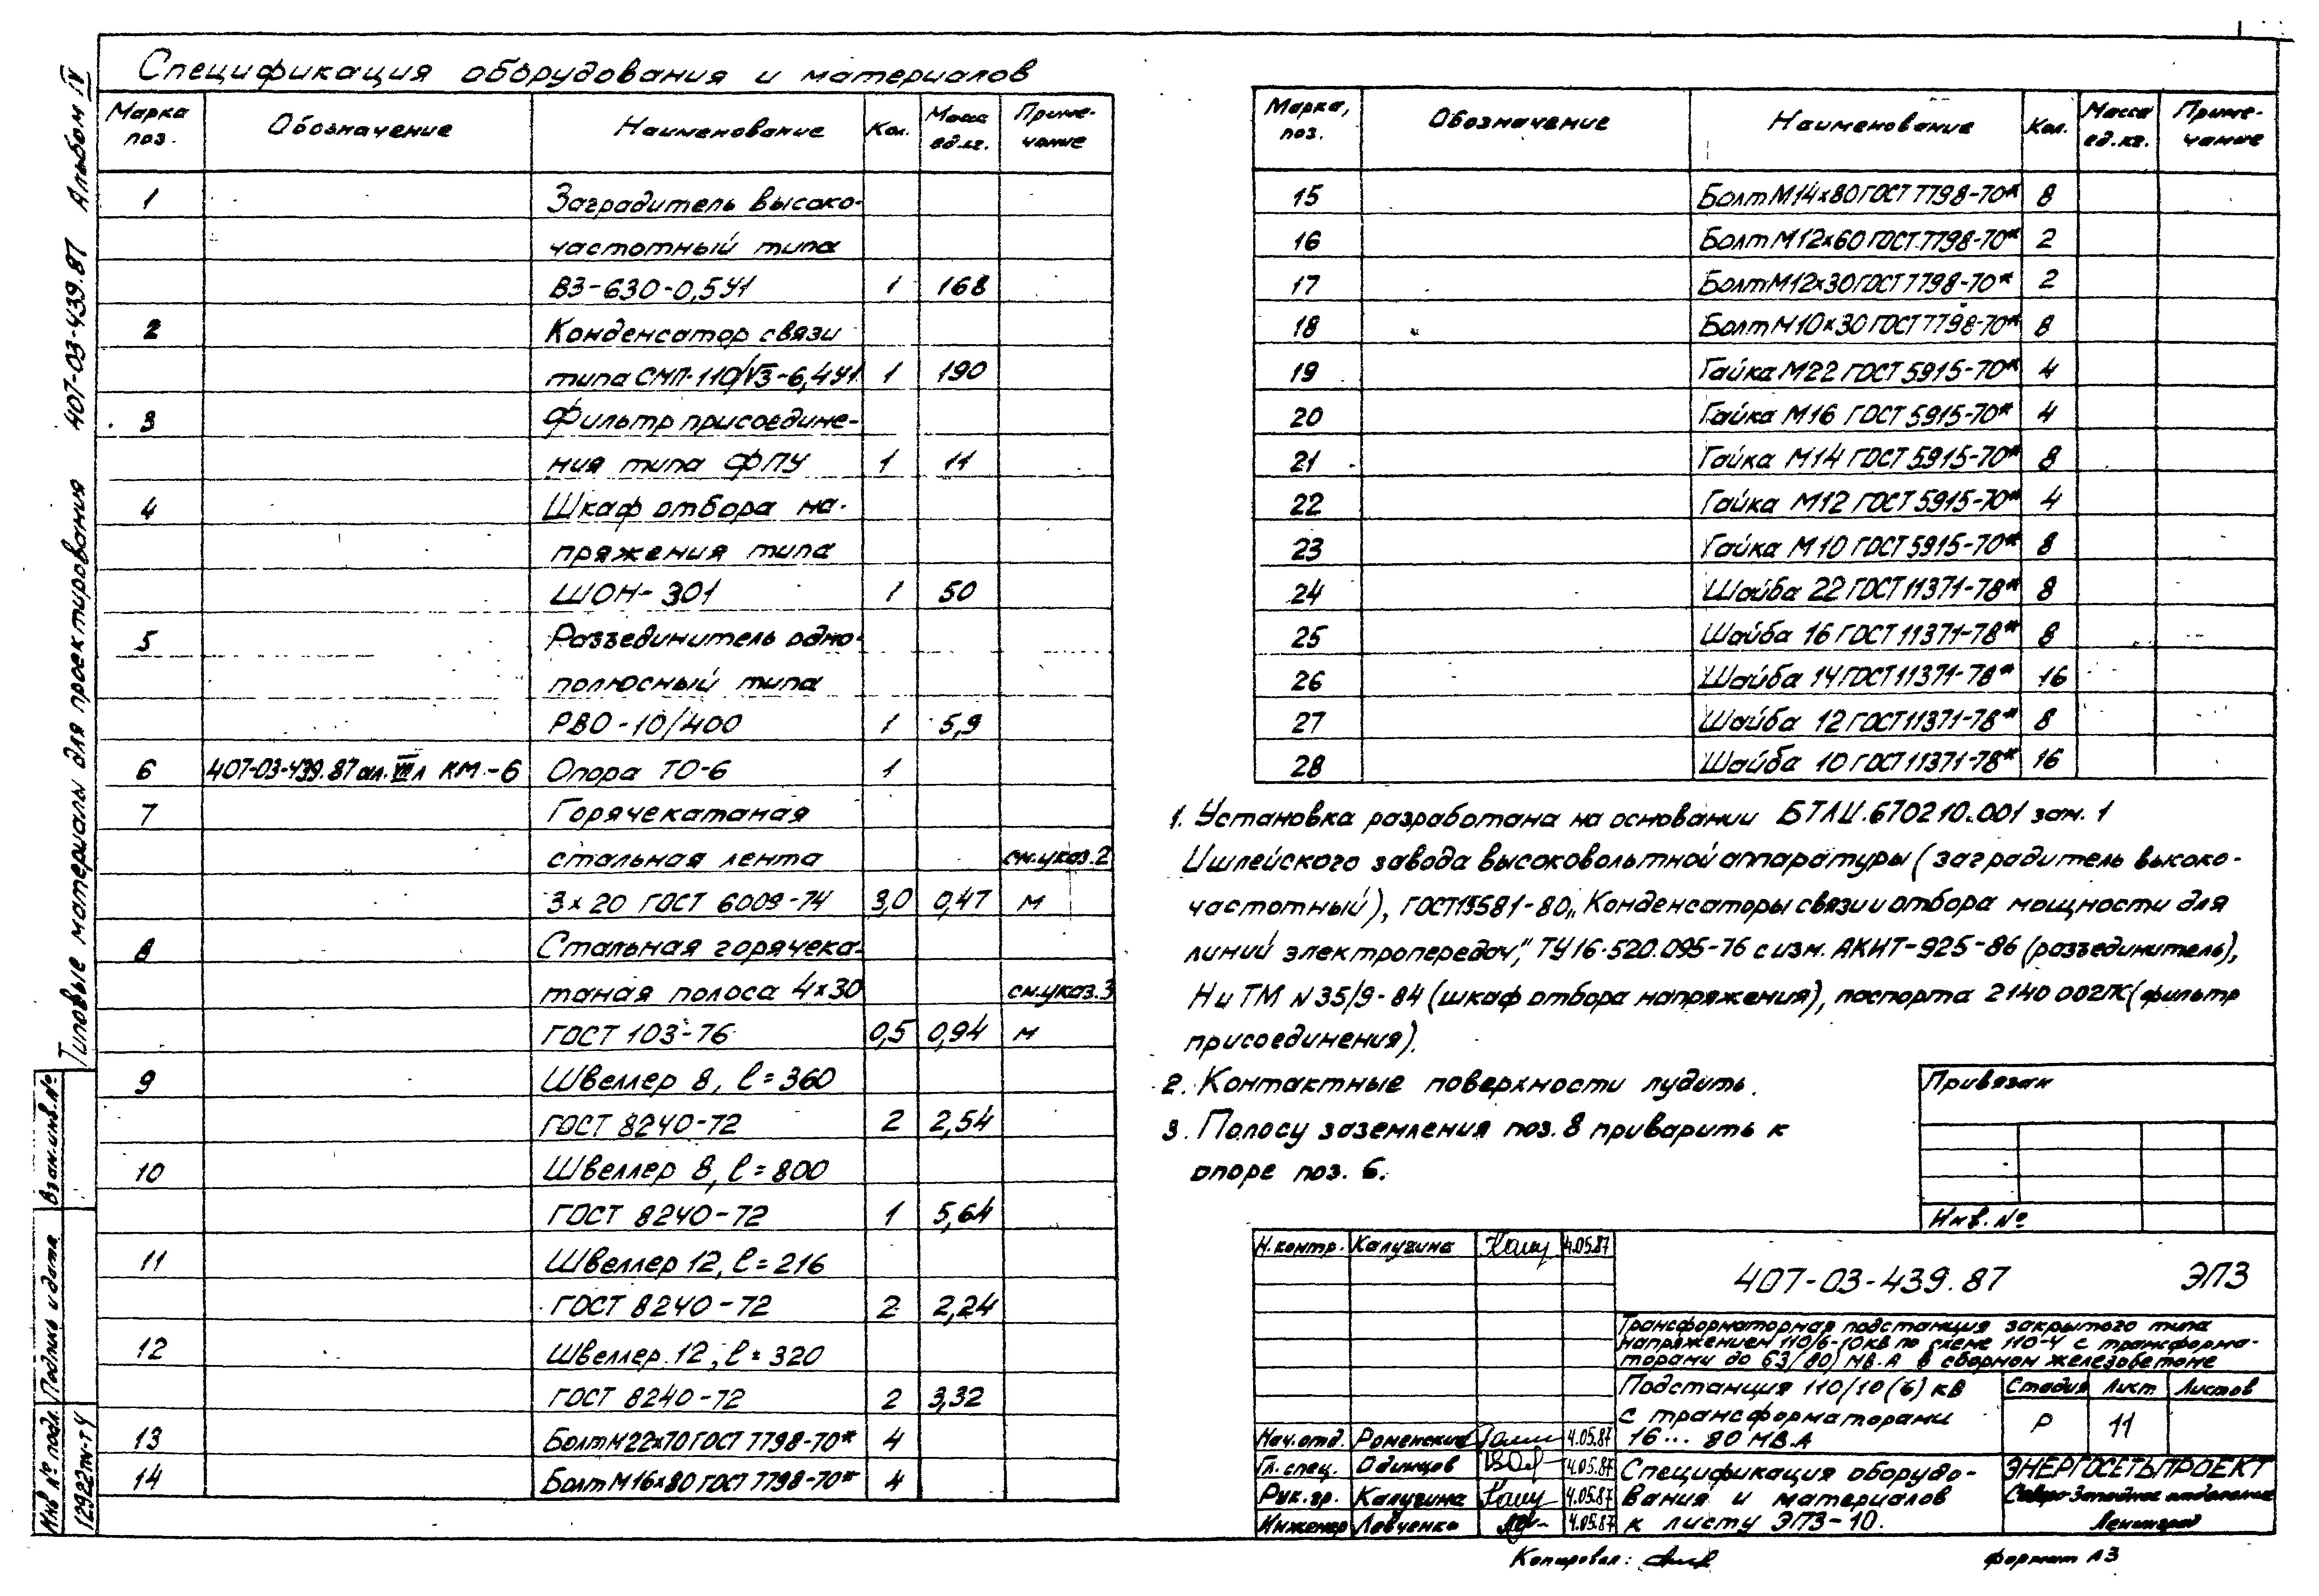 Типовые материалы для проектирования 407-03-439.87 Альбом IV
Взам.инв.№
Подпись и дата
Инв № подл.
12922тм-т4
Спецификация оборудования и материалов
Марка поз. Обозначение Наименование Кол. Масса ед.кг. Приме-чание
1 Заградитель высоко-
частотный типа
ВЗ-630-0,5У1 1 168
2 Конденсатор связи
типа СМП-110/√3-6,4У1 1 190
3 Фильтр присоедине-
ния типа ФПУ 1 11
4 Шкаф отбора на-
пряжения типа
ШОН-301 1 50
5 Разъединитель одно-
полюсный типа
РВО-10/400 1 5,9
6 407-03-439.87 ал. VII л КМ.-6 Опора ТО-6 1
7 Горячекатаная
стальная лента см.указ.2
3х20 ГОСТ 6009-74 3,0 0,47 м
8 Стальная горячека-
таная полоса 4х30 см.указ.3
ГОСТ 103-76 0,5 0,94 м
9 Швеллер 8, ℓ=360
ГОСТ 8240-72 2 2,54
10 Швеллер 8, ℓ=800
ГОСТ 8240-72 1 5,64
11 Швеллер 12, ℓ=216
ГОСТ 8240-72 2 2,24
12 Швеллер 12, ℓ=320
ГОСТ 8240-72 2 3,32
13 Болт М22х70 ГОСТ 7798-70* 4
14 Болт М16х80 ГОСТ 7798-70* 4
Марка, поз. Обозначение Наименование Кол. Масса ед.кг. Приме-чание
15 Болт М14х80 ГОСТ 7798-70* 8
16 Болт М12х60 ГОСТ 7798-70* 2
17 Болт М12х30 ГОСТ 7798-70* 2
18 Болт М10х30 ГОСТ 7798-70* 8
19 Гайка М22 ГОСТ 5915-70* 4
20 Гайка М16 ГОСТ 5915-70* 4
21 Гайка М14 ГОСТ 5915-70* 8
22 Гайка М12 ГОСТ 5915-70* 4
23 Гайка М10 ГОСТ 5915-70* 8
24 Шайба 22 ГОСТ 11371-78* 8
25 Шайба 16 ГОСТ 11371-78* 8
26 Шайба 14 ГОСТ 11371-78* 16
27 Шайба 12 ГОСТ 11371-78* 8
28 Шайба 10 ГОСТ 11371-78* 16
1. Установка разработана на основании БТЛИ.670210.001 зам. 1
Ишлейского завода высоковольтной аппаратуры (заградитель высоко-
частотный), ГОСТ 15581-80 „Конденсаторы связи и отбора мощности для
линий электропередач", ТУ 16-520.095-76 с изм. АКИТ-925-86 (разъединитель),
НиТМ №35/9-84 (шкаф отбора напряжения), паспорта 2140 002ПК (фильтр
присоединения).
2. Контактные поверхности лудить.
3. Полосу заземления поз. 8 приварить к
опоре поз. 6.
Привязан
Инв. №
Н.контр. Калугина 4.05.87
407-03-439.87 ЭПЗ
Трансформаторная подстанция закрытого типа
напряжением 110/6-10кв по схеме 110-4 с трансформа-
торами до 63/80/ МВ.А в сборном железобетоне
Подстанция 110/10(6) кв
с трансформаторами
16... 80 МВ.А
Стадия Лист Листов
Р 11
Нач.отд. Роменский 4.05.87
Гл.спец. Одинцов 4.05.87
Рук.гр. Калугина 4.05.87
Инженер Левченко 4.05.87
Спецификация оборудо-
вания и материалов
к листу ЭПЗ-10.
ЭНЕРГОСЕТЬПРОЕКТ
Северо-Западное отделение
Ленинград
Копировал:
формат А3